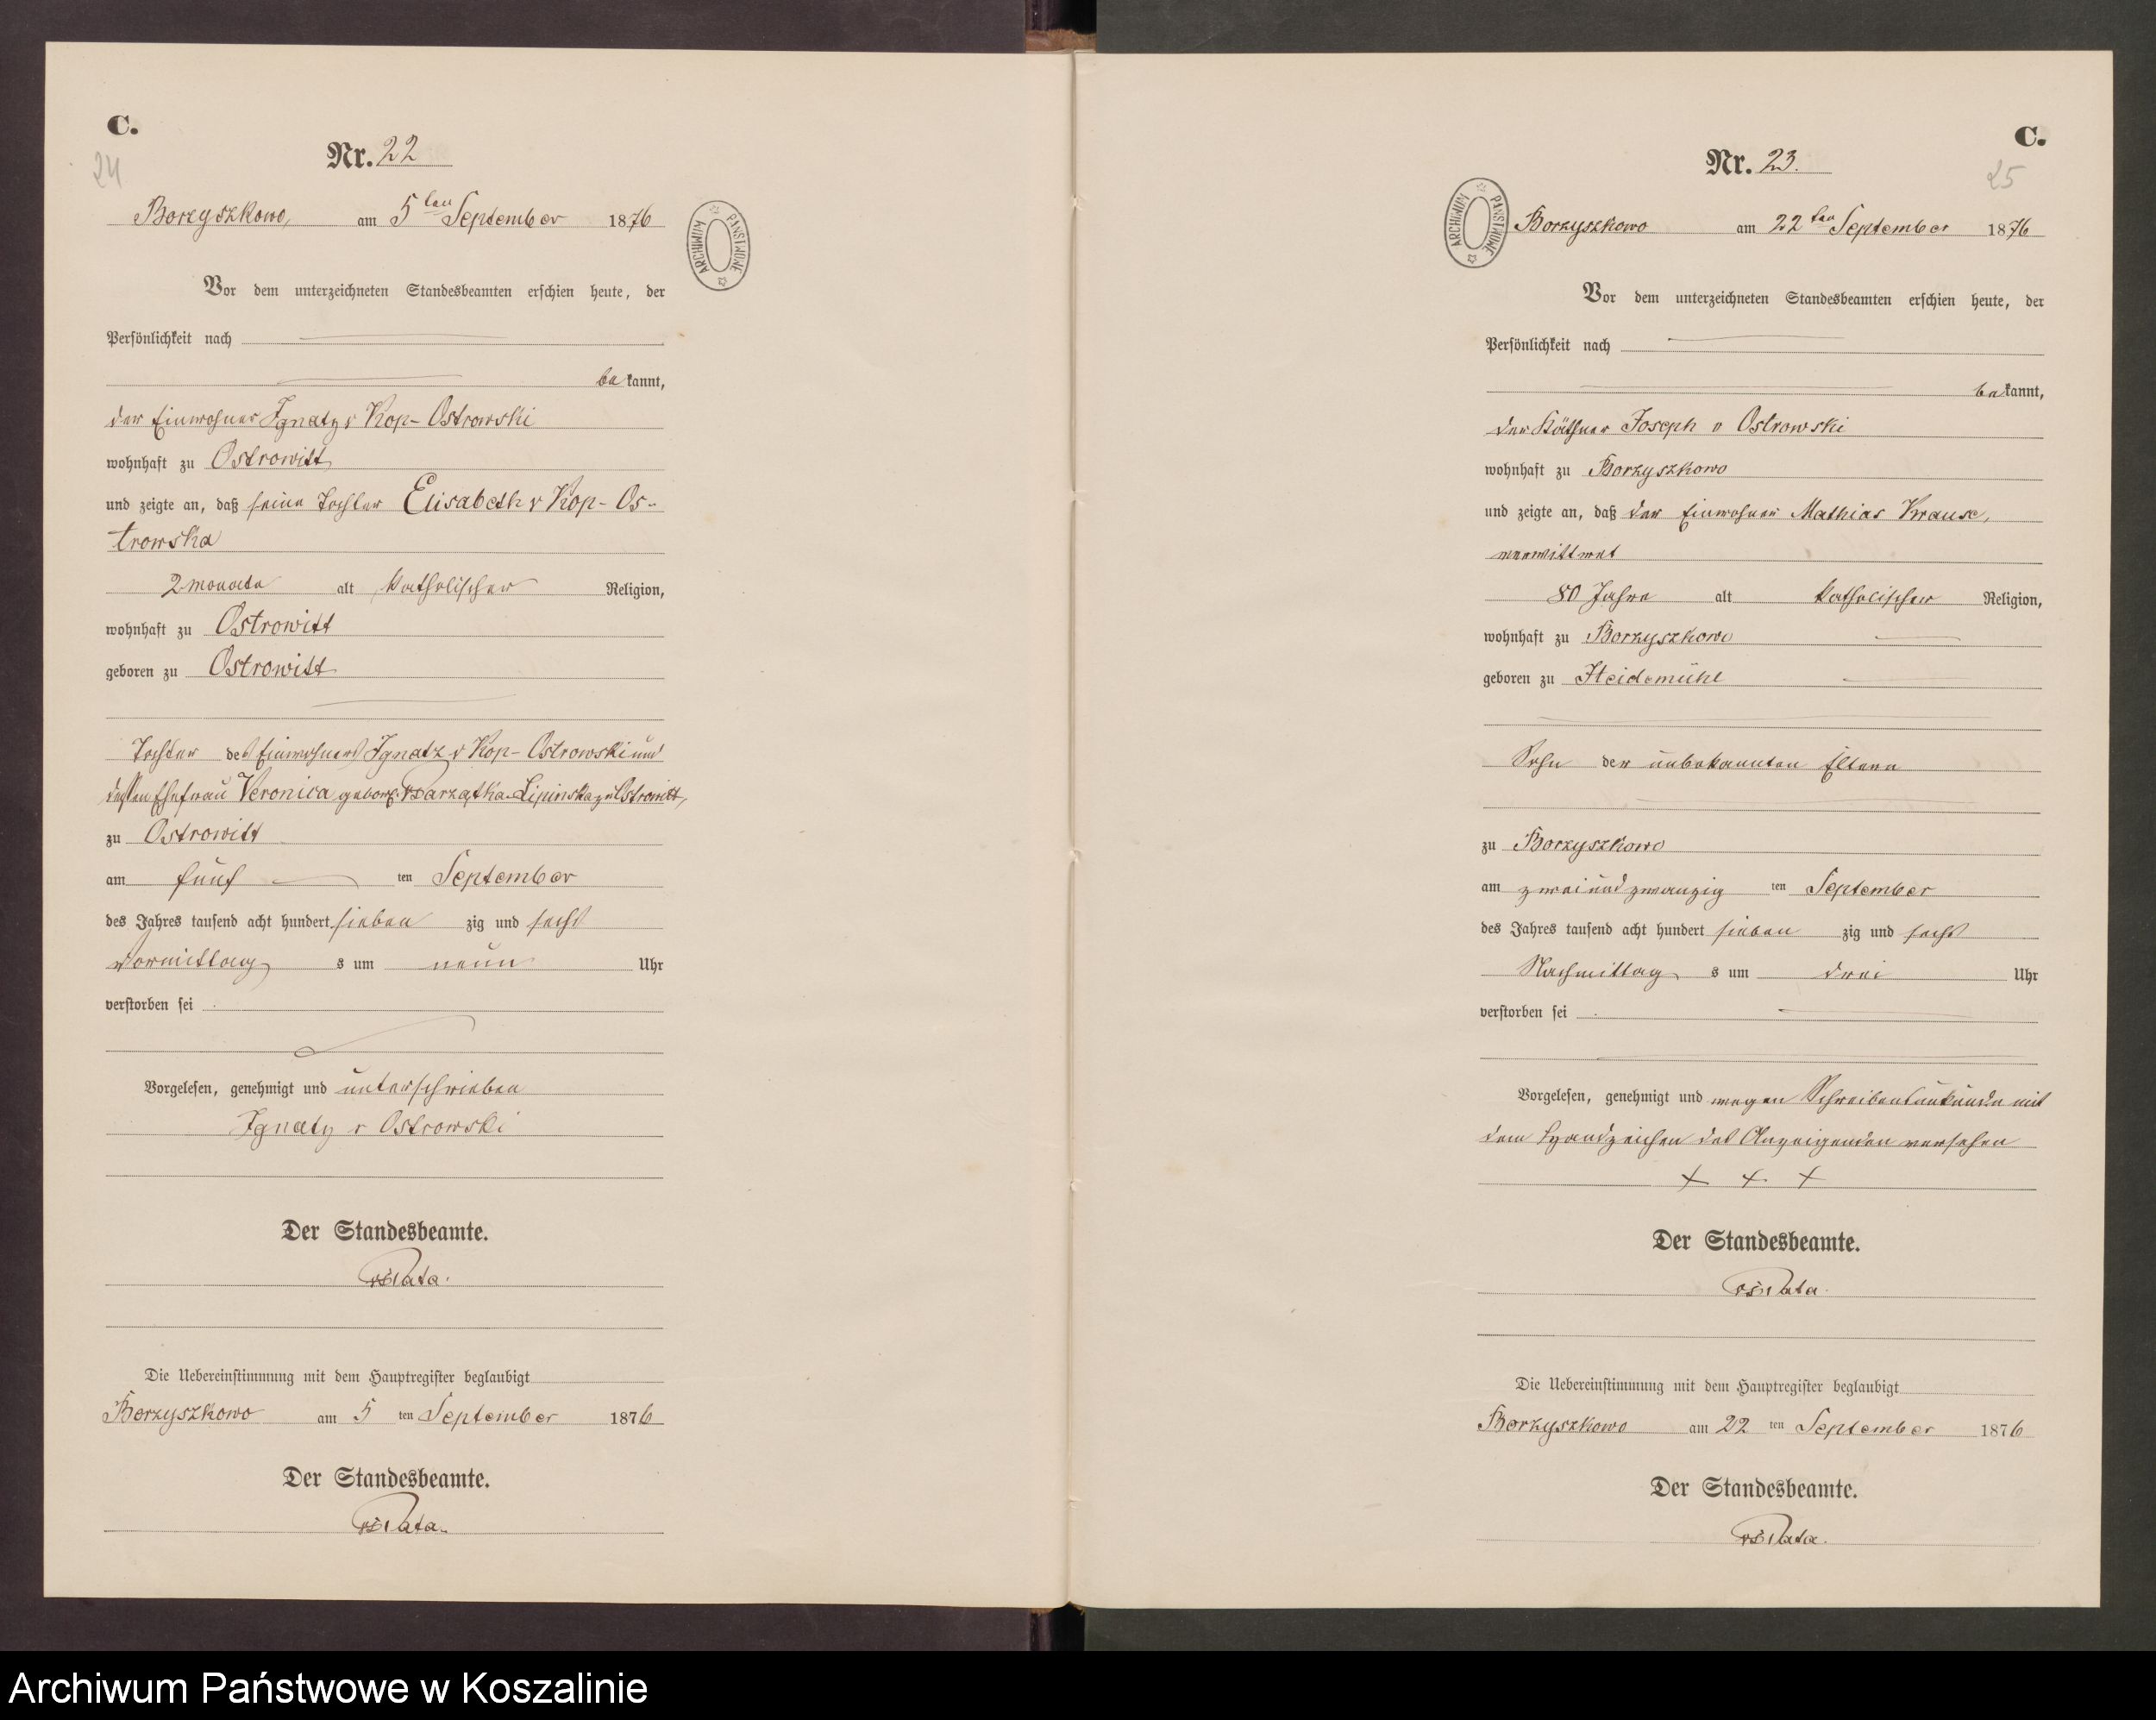 C.
24
Nr. 22
Borzyszkowo, am 5ten September 1876
ARCHIWUM PAŃSTWOWE
Vor dem unterzeichneten Standesbeamten erschien heute, der
Persönlichkeit nach
be kannt,
der Einwohner Ignatz v Kop-Ostrowski
wohnhaft zu Ostrowitt
und zeigte an, daß seine Tochter Elisabeth v Kop-Os-
trowska
2 Monate alt katholischer Religion,
wohnhaft zu Ostrowitt
geboren zu Ostrowitt
Tochter des Einwohners Ignatz v Kop-Ostrowski und
dessen Ehefrau Veronica geborn Lipinska zu Ostrowitt,
zu Ostrowitt
am fünf ten September
des Jahres tausend acht hundert sieben zig und sechs
Vormittag s um neun Uhr
verstorben sei
Vorgelesen, genehmigt und unterschrieben
Ignatz v Ostrowski
Der Standesbeamte.
Die Uebereinstimmung mit dem Hauptregister beglaubigt
Borzyszkowo am 5 ten September 1876
Der Standesbeamte.
C.
25
Nr. 23.
ARCHIWUM PAŃSTWOWE
Borzyszkowo am 22ten September 1876
Vor dem unterzeichneten Standesbeamten erschien heute, der
Persönlichkeit nach
be kannt,
der Käthner Joseph v Ostrowski
wohnhaft zu Borzyszkowo
und zeigte an, daß der Einwohner Mathias Krause,
verwittwet
80 Jahre alt katholischer Religion,
wohnhaft zu Borzyszkowo
geboren zu Heidemühl
Sohn der unbekannten Eltern
zu Borzyszkowo
am zweiundzwanzig ten September
des Jahres tausend acht hundert sieben zig und sechs
Nachmittag s um drei Uhr
verstorben sei
Vorgelesen, genehmigt und wegen Schreibensunkunde mit
dem Handzeichen des Anzeigenden versehen
+ + +
Der Standesbeamte.
Die Uebereinstimmung mit dem Hauptregister beglaubigt
Borzyszkowo am 22 ten September 1876
Der Standesbeamte.
Archiwum Państwowe w Koszalinie